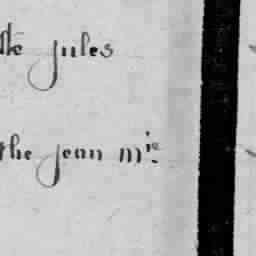 jules
the jean mie